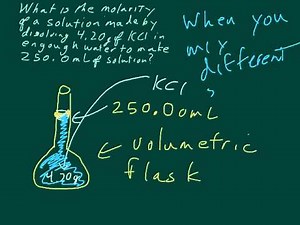 What is the molarity
of a solution made by
disolving 4.20g of KCl in
engough water to make
250.0mL of solution?
When you
mix
different
KCl
250.00mL
volumetric
flask
4.20g